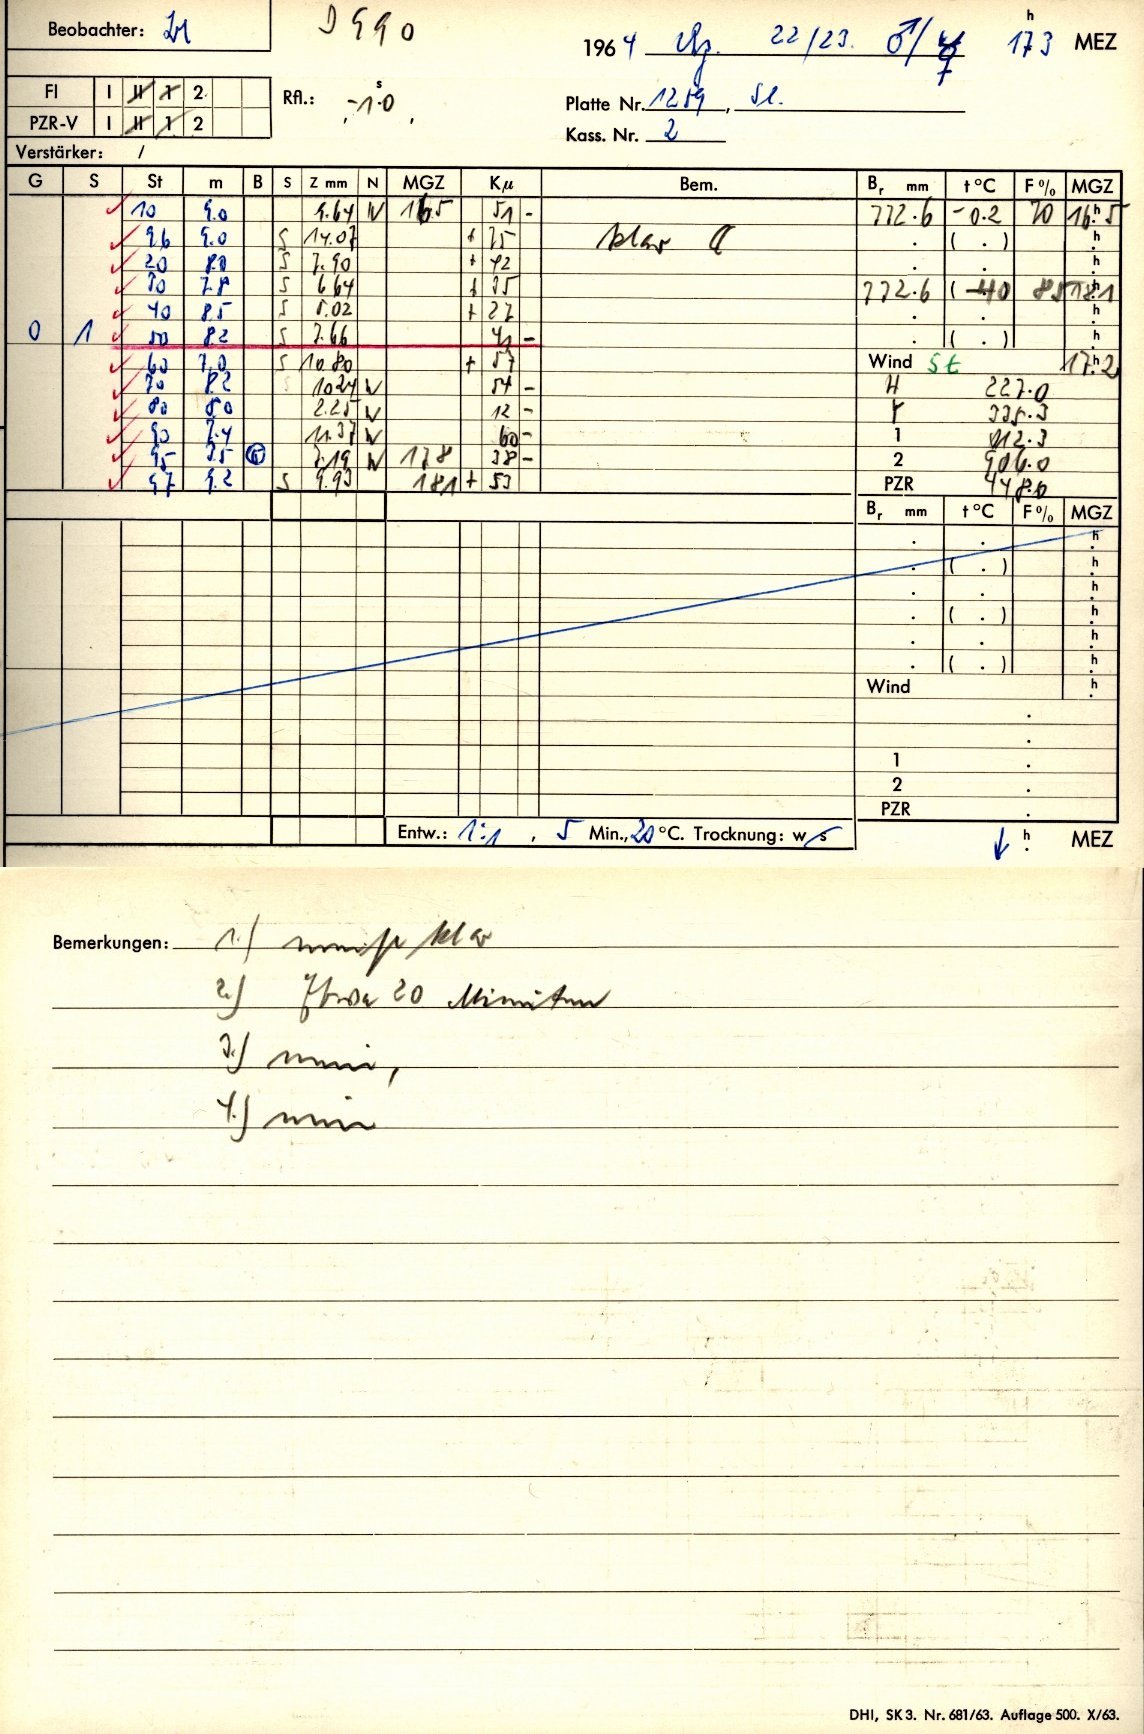 Beobachter:
D 990
1964 Dez. 22/23. ♂/☿ 17h3 MEZ
FI I II 1 2
PZR-V I II 1 2
Rfl.: -1s.0
Platte Nr. 1259, Sl.
Kass. Nr. 2
Verstärker: /
G S St m B S Z mm N MGZ Kμ Bem. Br mm t °C F % MGZ
10 9.0 9.64 N 16.5 51 - 772.6 -0.2 70 16h5
96 9.0 S 14.07 + 75 klar ( . ) h
20 8.0 S 7.90 + 42 . . h
30 7.8 S 6.64 + 35 772.6 ( -4.0 85 18h1
40 8.5 S 5.02 + 27 . . h
0 1 50 8.2 S 7.66 41 - . ( . ) h
60 7.0 S 10.80 + 57 Wind St 17h2
70 8.2 S 10.24 N 54 - H 227.0
80 8.0 2.25 N 12 - 335.3
90 7.4 11.37 N 60 - 1 912.3
95 7.5 7.19 N 17.8 38 - 2 906.0
97 9.2 S 9.93 18.1 + 53 PZR 448.0
Br mm t °C F % MGZ
. . h
. ( . ) h
. . h
. ( . ) h
. . h
. ( . ) h
Wind h
.
.
1 .
2 .
PZR .
Entw.: 1:1 , 5 Min., 20 °C. Trocknung: w/s h MEZ
Bemerkungen: 1.) klar
2.) Etwa 20 Minuten
3.) nein,
4.) nein
DHI, SK 3. Nr. 681/63. Auflage 500. X/63.